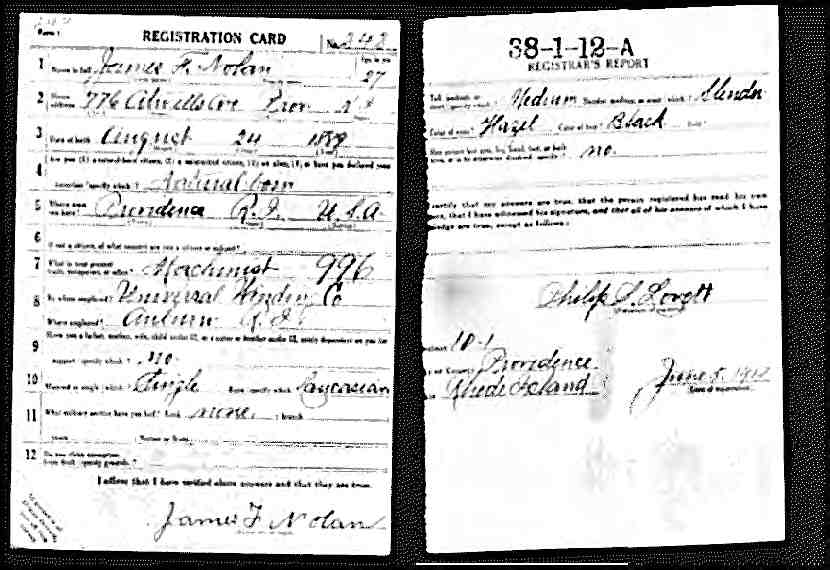 REGISTRATION CARD
No. 242
1 Name in full James F. Nolan Age in yrs 27
2 Home address 776 Atwells Ave Prov R I
3 Date of birth August 24
4 Are you (1) a natural-born citizen, (2) a naturalized citizen, (3) an alien, (4) or have you declared your
intention (specify which)? Natural born
5 Where were you born? Providence R.I. U.S.A.
6 If not a citizen, of what country are you a citizen or subject?
7 What is your present trade, occupation, or office? Machinist 996
8 By whom employed? Universal Winding Co
Where employed? Auburn R.I.
9 Have you a father, mother, wife, child under 12, or a sister or brother under 12, solely dependent on you for
support (specify which)? no
10 Married or single (which)? Single Race (specify which)? Caucasian
11 What military service have you had? Rank none ; branch
years ; Nation or State
12 Do you claim exemption from draft (specify grounds)?
I affirm that I have verified above answers and that they are true.
James F Nolan
38-1-12-A
REGISTRAR'S REPORT
Tall, medium, or short (specify which)? Medium Slender, medium, or stout (which)? Slender
Color of eyes? Hazel Color of hair? Black Bald?
Has person lost arm, leg, hand, foot, or both eyes, or is he otherwise disabled (specify)? no.
certify that my answers are true, that the person registered has read his own
that I have witnessed his signature, and that all of his answers of which I have
are true, except as follows:
Philip S. Lovett
Precinct 10-1
City or County Providence
Rhode Island
June 5, 1917
(Date of registration)